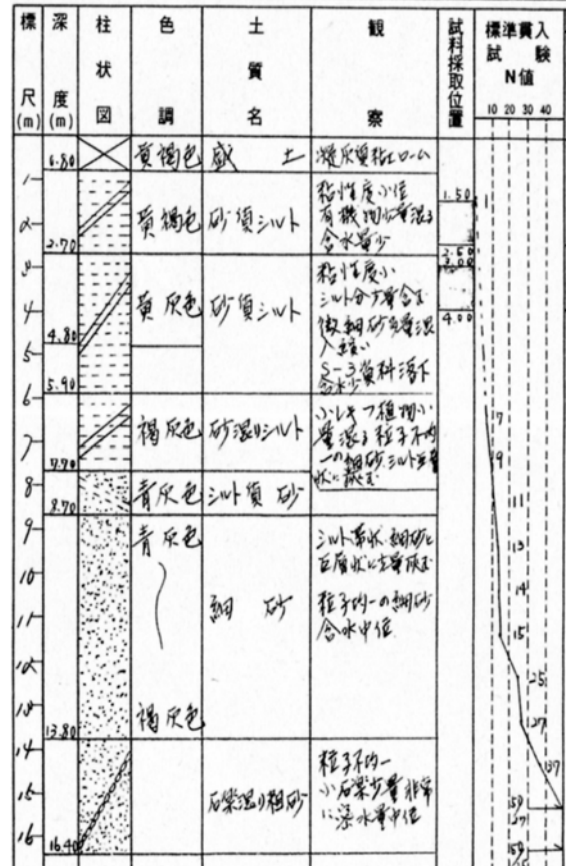 標尺(m) 深度(m) 柱状図 色調 土質名 観察 試料採取位置 標準貫入試験 N値
10 20 30 40
0.80 黄褐色 盛土 凝灰質粘土ローム
1
2
2.70 黄褐色 砂質シルト
粘性度小位
有機物少量混る
含水量少
1.50
1
2.50
3.00
3
4
4.80
5
5.90
黄灰色 砂質シルト
粘性度小
シルト分少量含む
微細砂多量混
入緩い
S-3資料落下
含水少
4.00
6
7
7.70 褐灰色 砂混りシルト
量混る 粒子不均
一の細砂、シルト
7
9
8
8.70 青灰色 シルト質砂
11
9
10
11
12
13
13.80
青灰色
細砂
褐灰色
粒子均一の細砂
含水中位
13
14
15
25
27
14
15
16
16.40
礫混り粗砂
粒子不均一
小石礫少量非常
水量中位
37
59
27
59